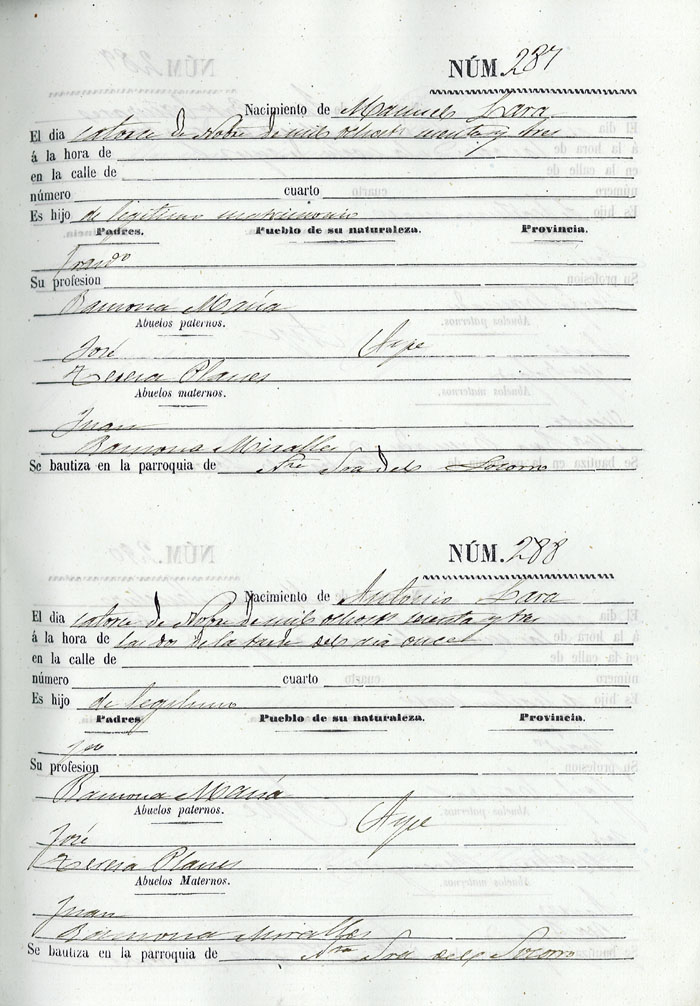 NÚM. 287
Nacimiento de Manuel Lara
El día catorce de Nobre de mil ochocts sesenta y tres
á la hora de
en la calle de
número cuarto
Es hijo de legítimo matrimonio
Padres. Pueblo de su naturaleza. Provincia.
Su profesion
Ramona María
Abuelos paternos.
José Aspe
Teresa Planes
Abuelos maternos.
Juan
Ramona Miralles
Se bautiza en la parroquia de Ntra Sra del Socorro
NÚM. 288
Nacimiento de Antonio Lara
El día catorce de Nobre de mil ochocts sesenta y tres
á la hora de las dos de la tarde del dia once
en la calle de
número cuarto
Es hijo de legítimo
Padres Pueblo de su naturaleza. Provincia.
Su profesion
Ramona María
Abuelos paternos.
José Aspe
Teresa Planes
Abuelos Maternos.
Juan
Ramona Miralles
Se bautiza en la parroquia de Ntra Sra del Socorro